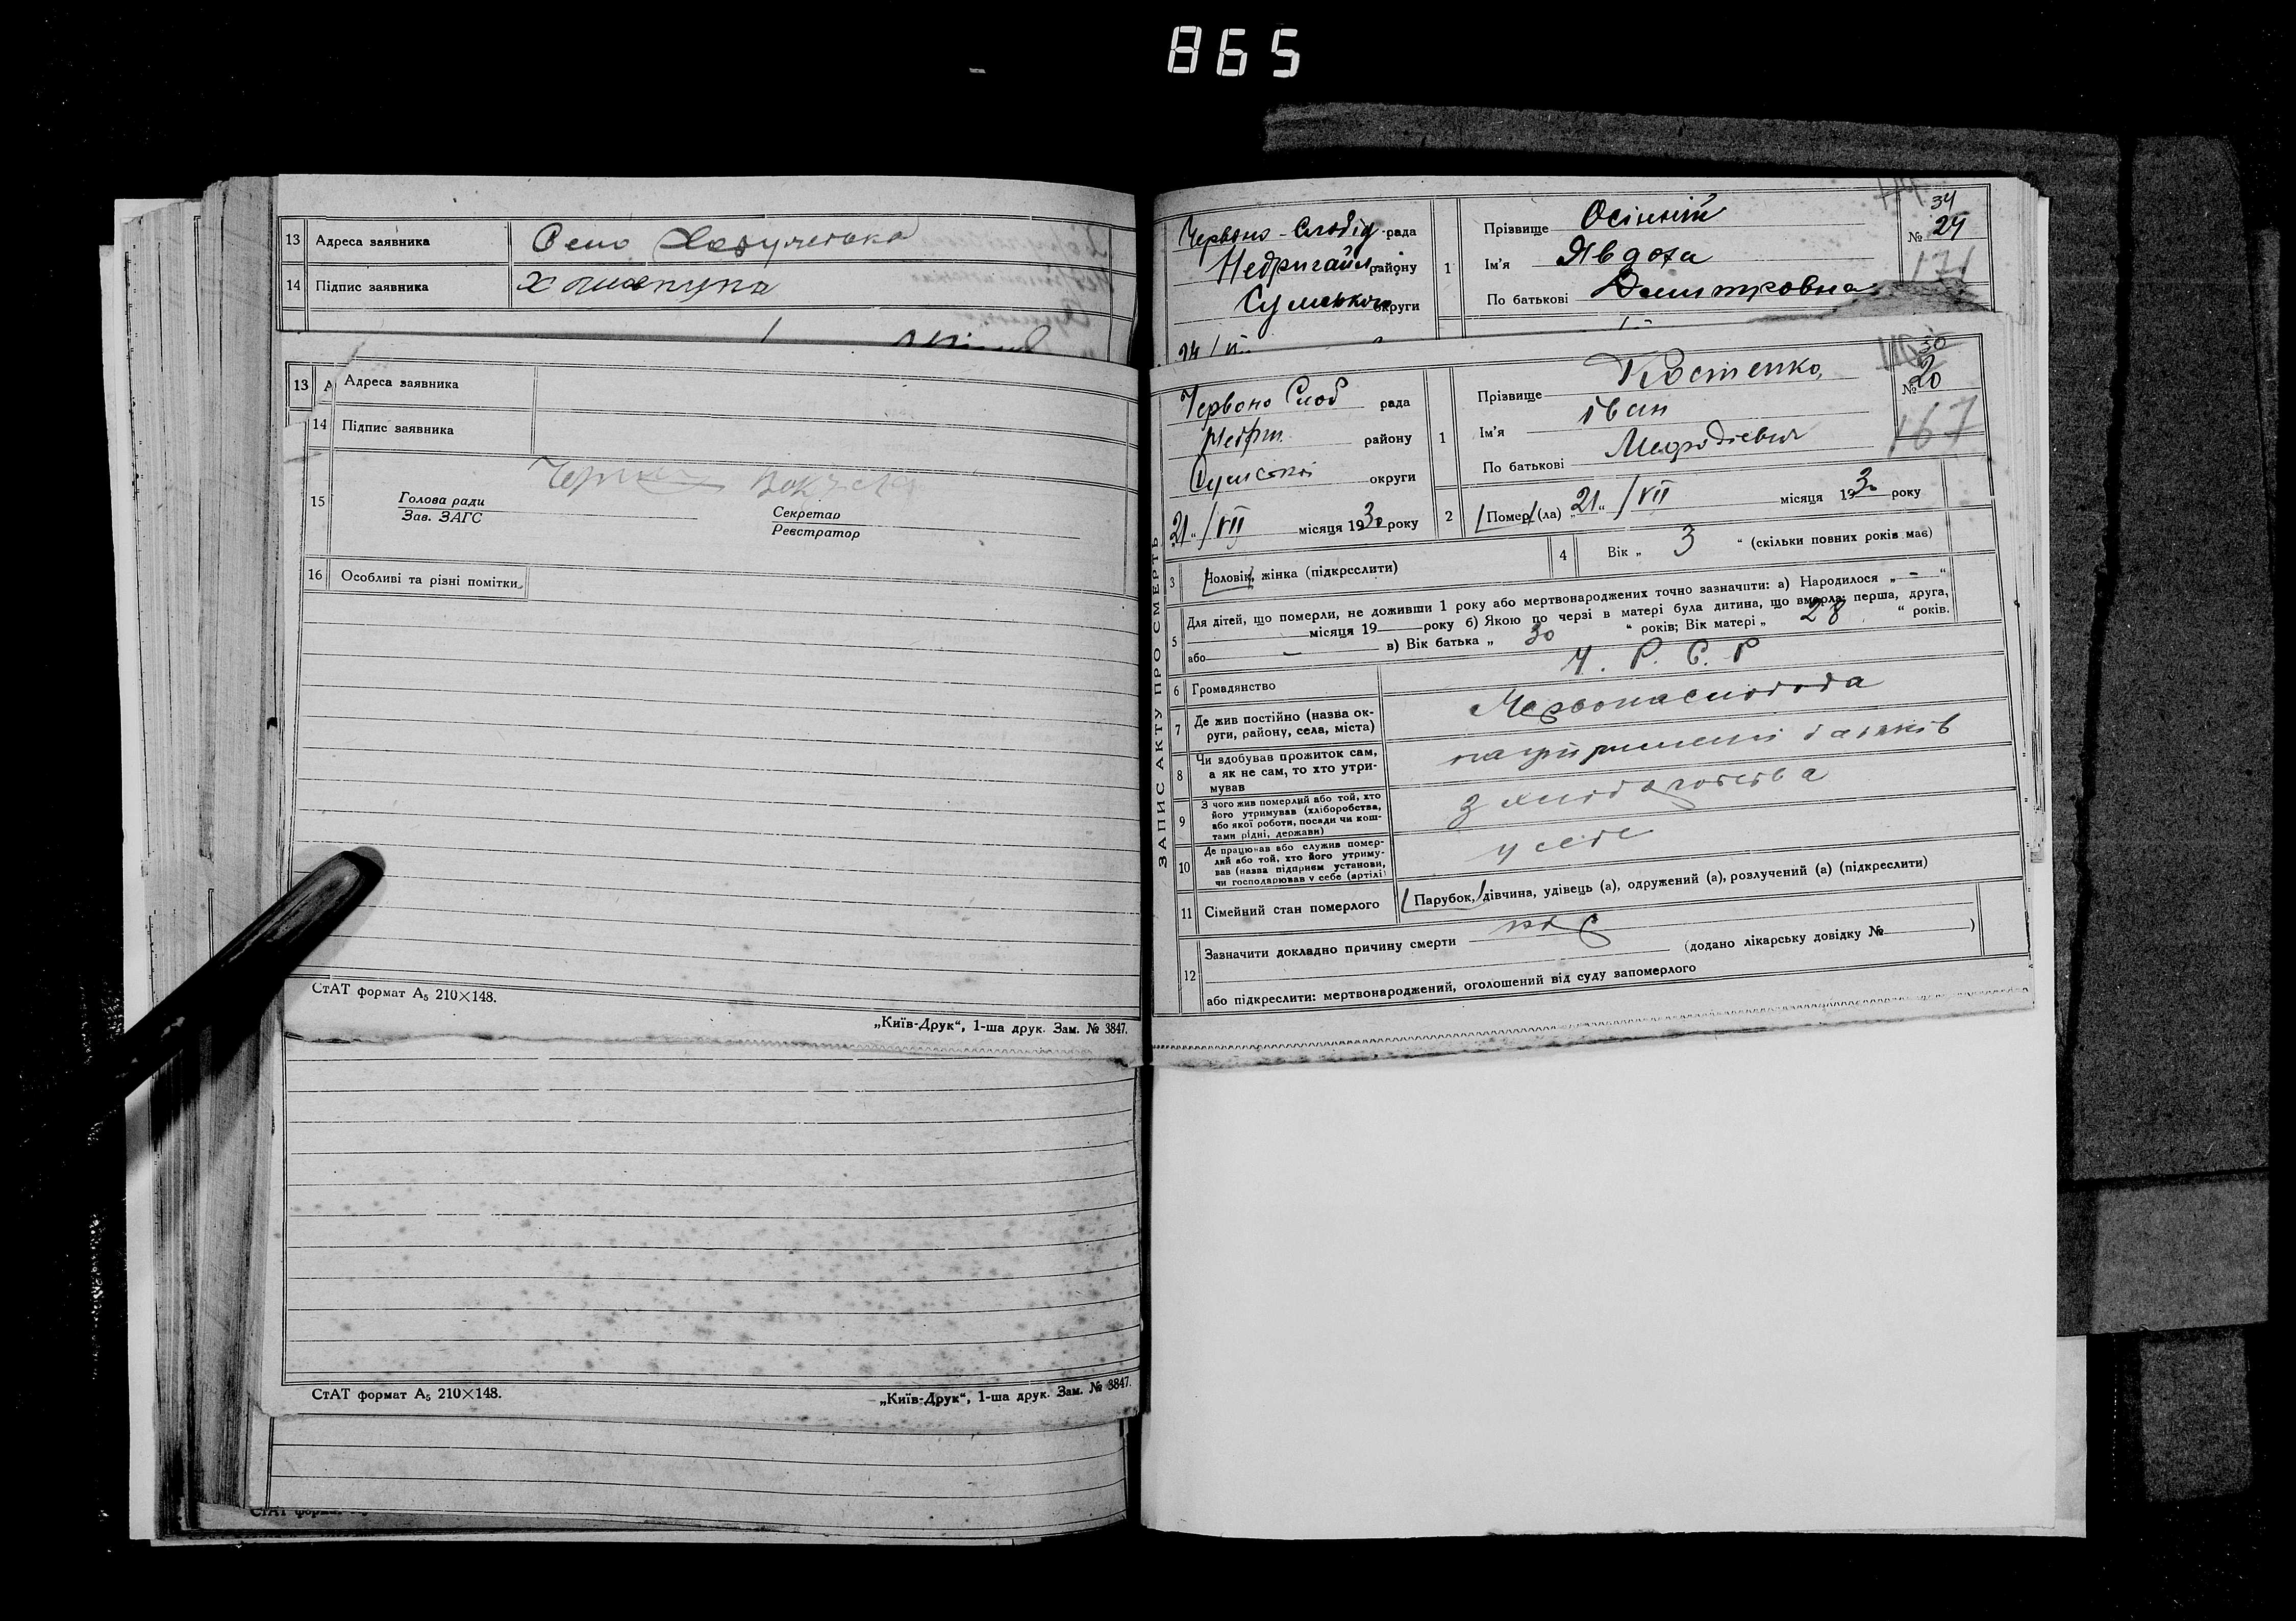 865
13 Адреса заявника Село
14 Підпис заявника
13 А Адреса заявника
14 Підпис заявника
15 Голова ради Секретар
Зав. ЗАГС Реєстратор
16 Особливі та різні помітки
СтАТ формат А₅ 210×148.
„Київ-Друк“, 1-ша друк. Зам. № 3847.
СтАТ формат А₅ 210×148.
„Київ-Друк“, 1-ша друк. Зам. № 3847.
СтАТ форм
Червоно-Слобід рада
Недригайл району
Сумської округи
1 Прізвище Осінній
Ім'я Явдоха
По батькові Дмитровна
34
№ 24
171
ЗАПИС АКТУ ПРО СМЕРТЬ
Червоно Слоб рада
Недри району
Сумської округи
„21“ /VII місяця 1930 року
1 Прізвище Костенко
Ім'я Іван
По батькові Мефодієвич
30
№ 20
167
2 Помер (ла) „21“ /VII місяця 1930 року
3 Чоловік, жінка (підкреслити)
4 Вік „ 3 “ (скільки повних років має)
5 Для дітей, що померли, не доживши 1 року або мертвонароджених точно зазначити: а) Народилося „ - “
місяця 19 року б) Якою по черзі в матері була дитина, що вмерла: перша, друга,
або – в) Вік батька „ 30 “ років; Вік матері „ 28 “ років.
6 Громадянство У. Р. С. Р
7 Де жив постійно (назва округи, району, села, міста) Червонаслобода
8 Чи здобував прожиток сам, а як не сам, то хто утримував на утриманні батьків
9 З чого жив померлий або той, хто його утримував (хліборобства, або якої роботи, посади чи коштами рідні, держави) з хліборобства
10 Де працював або служив померлий або той, хто його утримував (назва підприєм установи, чи господарював у себе (артілі) у себе
11 Сімейний стан померлого Парубок, дівчина, удівець (а), одружений (а), розлучений (а) (підкреслити)
12 Зазначити докладно причину смерти
(додано лікарську довідку № )
або підкреслити: мертвонароджений, оголошений від суду запомерлого